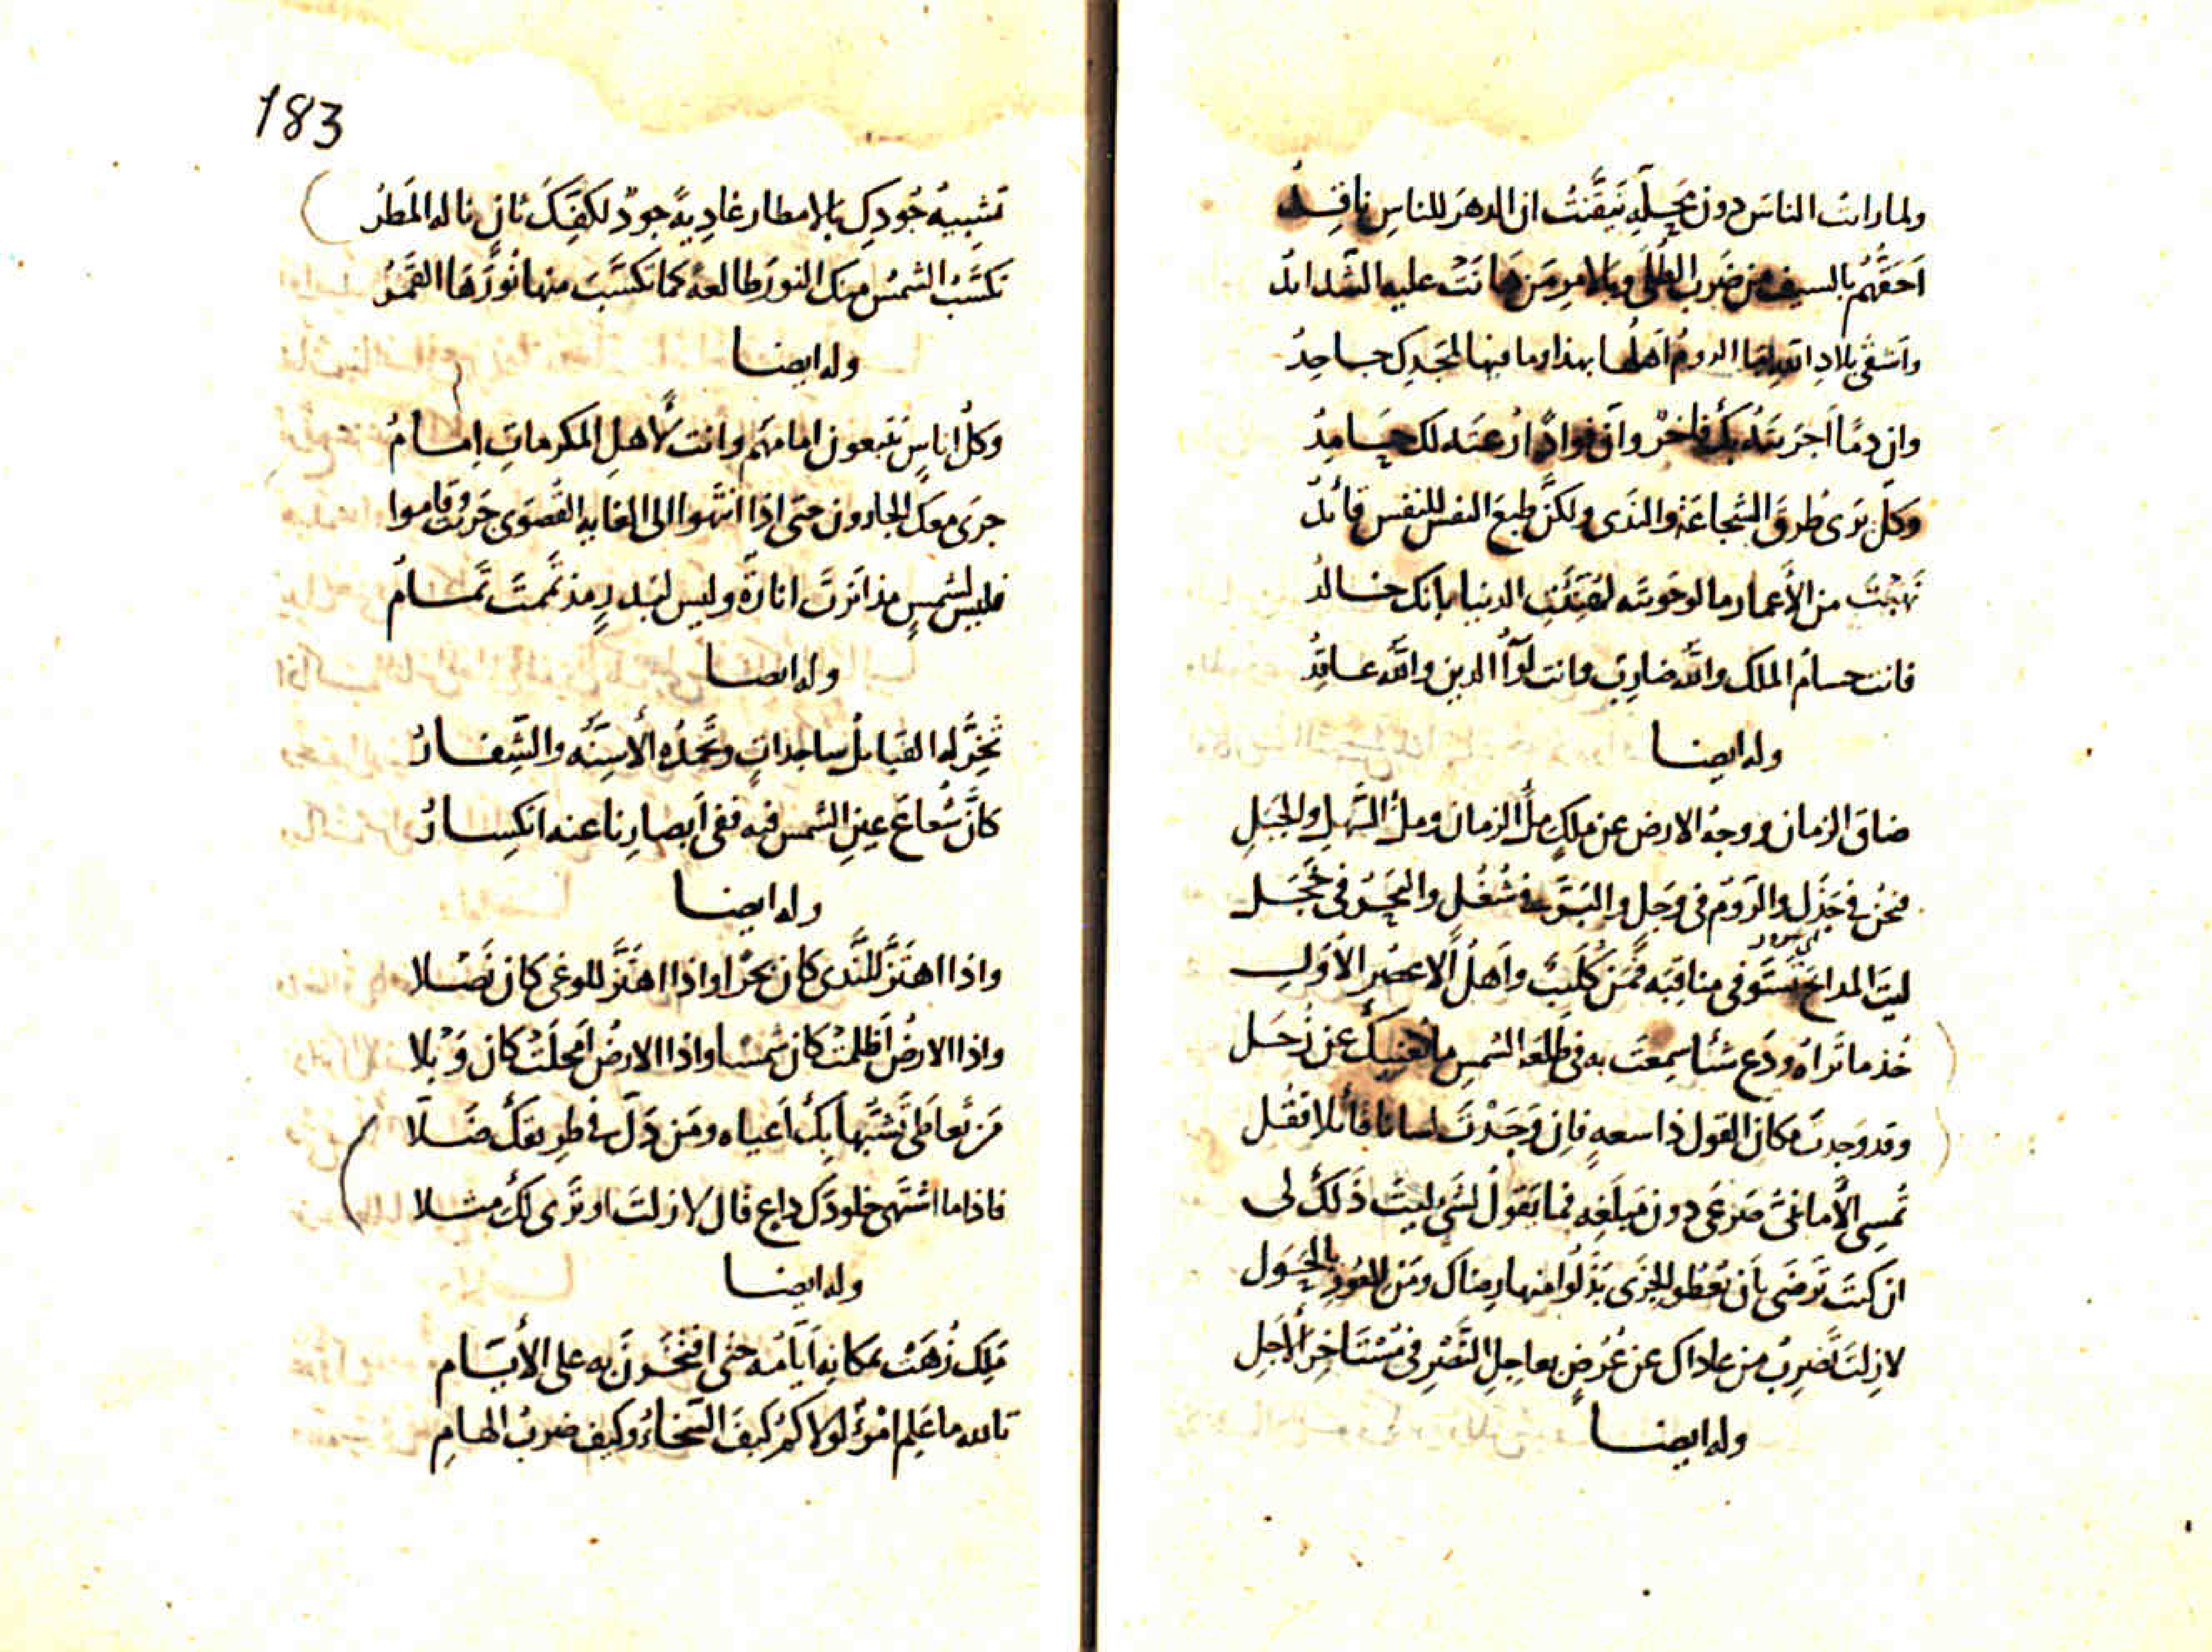 ولما رايت الناسَ دون محلِّهِ تيقّنتُ ان الدهرَ للناسِ ناقِدُ
اَحَقُّهُم بالسيفِ من ضَربَ الطُّلَى وبالامرِ مَن هانَتْ عليه الشدائدُ
واَشقَى بلادِ اللهِ ما الرومُ اَهلُها بهذا وما فيها لمجدِك جاحِدُ
وان دمًا اَجرَيتَهُ بكَ فاخرٌ وان فوادًا رُعتَه لك حامِدُ
وكلٌّ يَرى طُرقَ الشجاعَةِ والندَى ولكنَّ طبعَ النفسِ للنفسِ قائدُ
نَهبْتَ من الأعمار ما لو حَوَيتَه لهُنِّئَتِ الدنيا بانك خالدُ
فانت حسامُ الملك واللهُ ضاربٌ وانت لوآُ الدين واللهُ عاقِدُ
وله ايضا
ضاقَ الزمان ووجهُ الارض عن ملكٍ ملُ الزمان وملُ السَّهلِ والجَبَلِ
فنحنُ فى جَذَلٍ والرومُ فى وَجَلٍ والبَرُّ فى شُغُلٍ والبَحرُ فى خَجَلِ
ليتَ المدائحَ تَستَوفى مناقِبَه فمَن كُلَيبٌ واَهلُ الاعصُرِ الاُوَلِ
خُذ ما تَراهُ ودَع شئا سمِعتَ به فى طَلعَة الشمسِ ما يُغنيكَ عن زُحَلِ
وقد وَجدتَ مكانَ القول ذا سعهٍ فان وَجَدْتَ لسانا قائلا فقُلِ
تُمسِى الأَمانىُّ صَرعَى دون مَبلَغِهِ فما يَقولُ لشىٍ ليتَ ذَلكَ لى
ان كنتَ تَرضَى بان يُعطُوا الجِزَى بَذَلُوا منها رِضاك ومَن للعُورِ بالحَوَلِ
لا زِلتَ تَضرِبُ من عاداك عن عُرُضٍ بعاجِلِ النَّصْرِ فى مُسْتَاخِرِ الأَجَلِ
وله ايضا
183
تَشبيهُ جُودِكِ بالامطار غادِيةً جودٌ لكفِّكَ ثانٍ نالهُ المَطَرُ
تكسَّبُ الشمسُ منك النورَ طالعهً كما تكسَّبَ منها نُورَها القَمَرُ
وله ايضا
وكلُّ اناسٍ يتبعون امامهم وانت لاَهلِ المكرماتِ اِمامُ
جرَى معك الجارون حتى اذا انتهوا الى الغايه القُصوَى جَرَيتَ وقاموا
فليس لشمسٍ مذ اَنَرتَ انارَةٌ وليس لبَدرٍ مذ تَممتَ تَمامُ
وله ايضا
تَخِرُّ له القبايلُ ساجداتٍ وتَحمَدُه الاَسِنَّه والشِّفارُ
كانَّ شُعاعَ عينِ الشمس فيه ففى اَبصارِنا عنه انكِسارُ
وله ايضا
واذا اهتَزَّ للنَّدى كان بحْرًا واذا اهتَزَّ للوغى كان نَصْلا
واذا الارضُ اَظلمتْ كان شمسًا واذا الارضُ اَمحلَتْ كان وَبْلا
مَن تعاطَى تَشَبُّهًا بكَ اَعياه ومَن دَلَّ فى طريقكَ ضَلّا
فاذا ما اشتَهى خلودَك داعٍ قال لا زلتَ او تَرى لكَ مثلا
وله ايضا
مَلِك زُهَتْ بمكانِه اَيّامُه حتى افتَخَرنَ به على الاَيّامِ
تالله ما عَلِم امْرُؤٌ لولاكُمُ كيفَ السَّخاءُ وكيف ضربُ الهامِ